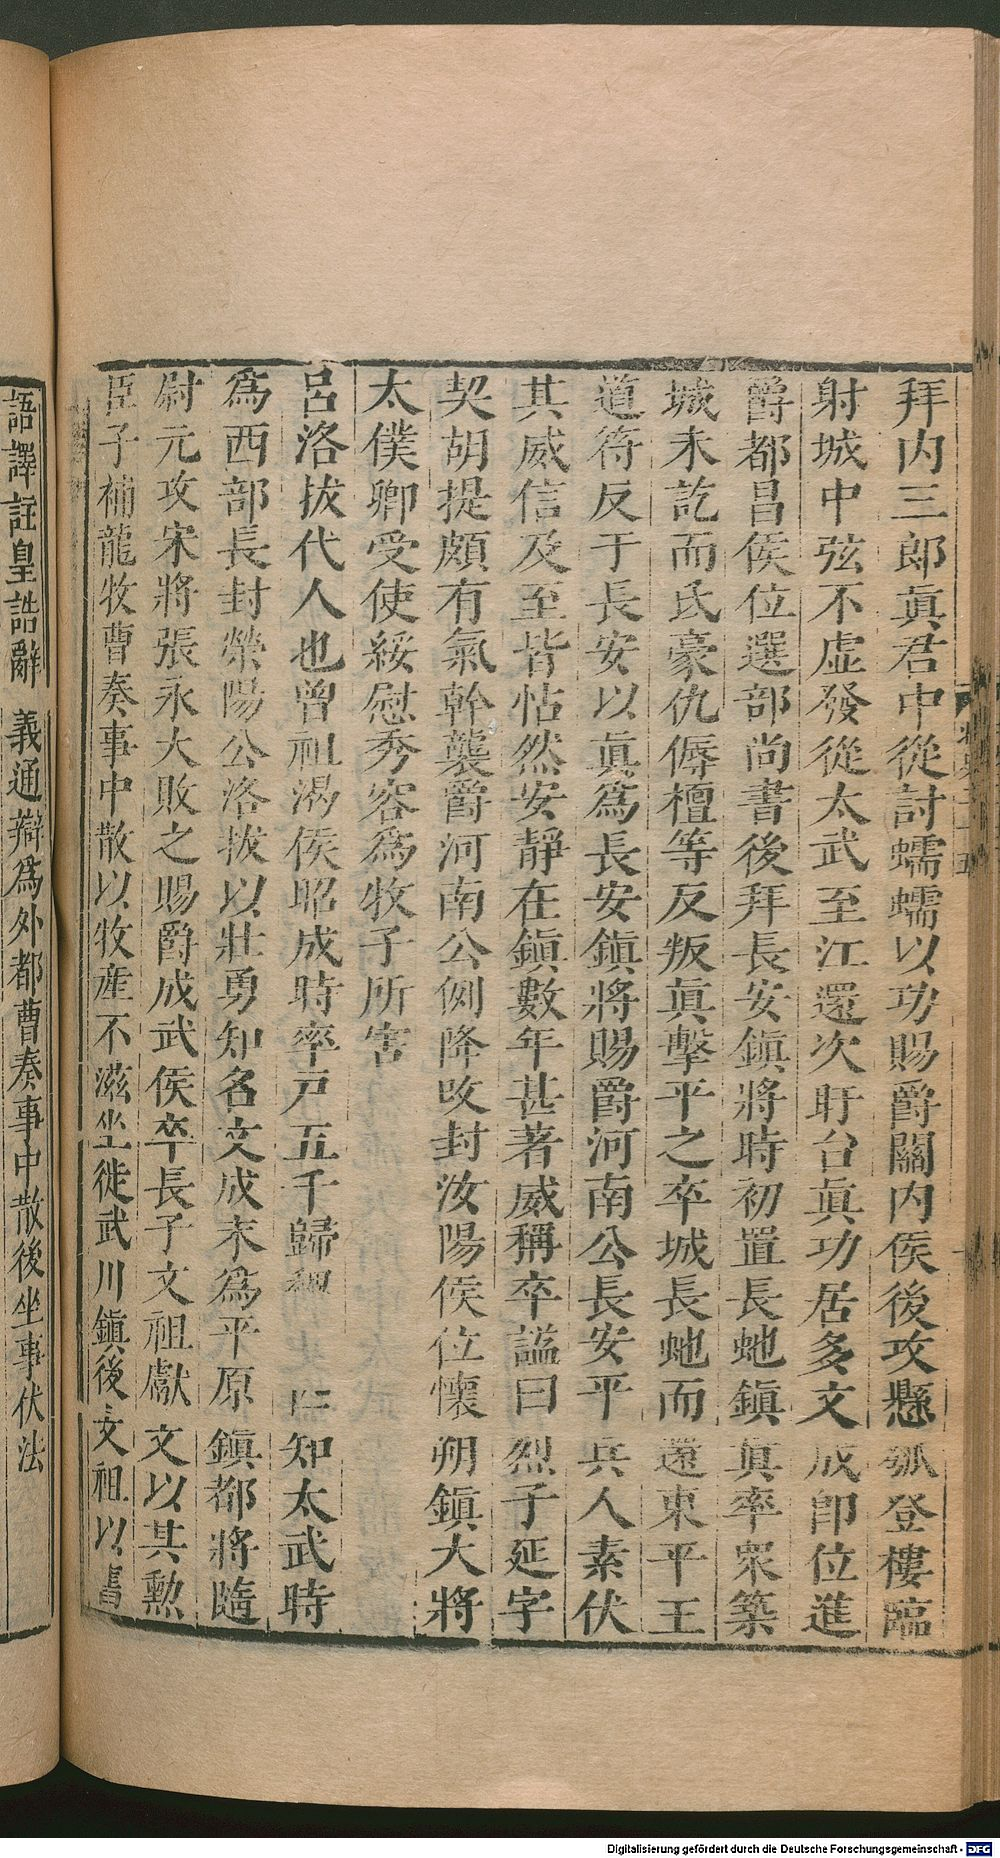 拜内三郎眞君中從討蠕蠕以功賜爵關内侯後攻懸瓠登樓臨
射城中弦不虚發從太武至江還次盱台眞功居多文成卽位進
爵都昌侯位選部尚書後拜長安鎮將時初置長虵鎮眞率衆築
城未訖而氐豪仇傉檀等反叛眞擊平之卒城長虵而還東平王
道符反于長安以眞為長安鎮將賜爵河南公長安平兵人素伏
其威信及至皆怗然安靜在鎮數年甚著威稱卒諡曰烈子延字
契胡提頗有氣幹襲爵河南公例降改封汝陽侯位懷朔鎮大將
太僕卿受使綏慰秀容為牧子所害
呂洛拔代人也曾祖渴侯昭成時率戸五千歸 知太武時
為西部長封榮陽公洛拔以壯勇知名文成末為平原鎮都將隨
尉元攻宋將張永大敗之賜爵成武侯卒長子文祖獻文以其勲
臣子補龍牧曹奏事中散以牧産不滋坐徙武川鎮後文祖以書
語譯註皇誥辭義通辯為外都曹奏事中散後坐事伏法
Digitalisierung gefördert durch die Deutsche Forschungsgemeinschaft - DFG